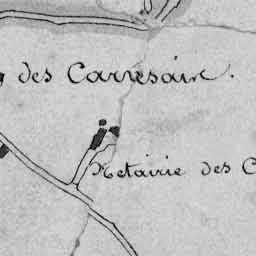 des Carresair.
Metairie des C